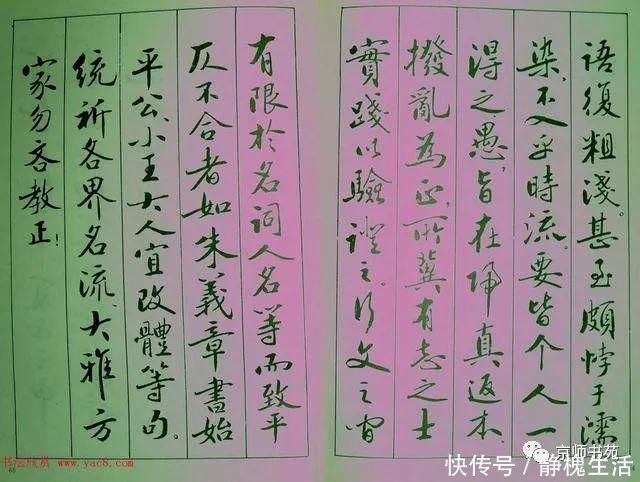 語復粗淺。甚至頗悖于濡
染，不入乎時流。要皆个人一
得之愚，旨在歸真返本，
撥亂為正，所冀有志之士
實踐以驗證之。行文之間
有限於名詞人名等而致平
仄不合者如朱義章書始
平公，小王大人宜改體等句。
統祈各界名流，大雅方
家勿吝教正！
书坛欣赏 www.yac8.com
京师书苑
快传号/静槐生活